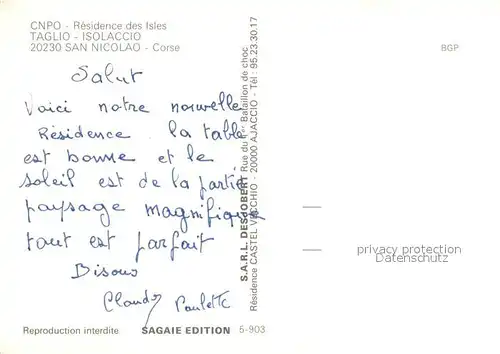 CNPO - Résidence des Isles
TAGLIO - ISOLACCIO
20230 SAN NICOLAO - Corse
BGP
Salut
Voici notre nouvelle
Résidence. la table
est bonne et le
soleil est de la partie
paysage magnifique
tout est parfait
Bisous
Claudy Paulette
S.A.R.L. DESJOBERT Rue du 1er Bataillon de choc
Résidence CASTEL VECCHIO - 20000 AJACCIO - Tél : 95.23.30.17
privacy protection
Datenschutz
Reproduction interdite SAGAIE EDITION 5-903